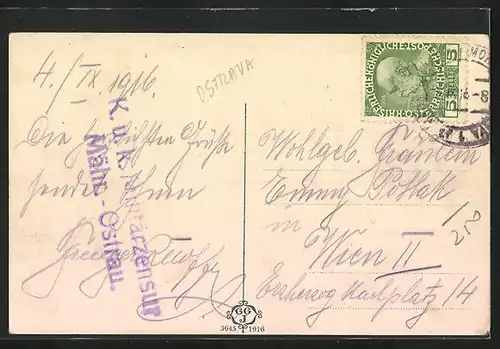 4./IX. 1916.
OSTRAVA
Die herzlichsten Grüße
sendet Ihnen
K. u. k. Militärzensur
Mähr.-Ostrau.
KAISERLICHE KÖNIGLICHE ÖSTERREICHISCHE POST
5
Wohlgeb. Fräulein
Emmy Pollak
in
Wien II
Erzherzog Karlplatz 14
2,50
GG
J
3645 1916